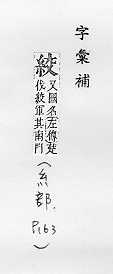 字彙補
絞
又國名左傳楚
伐絞軍其南門
(糸部. P.163)